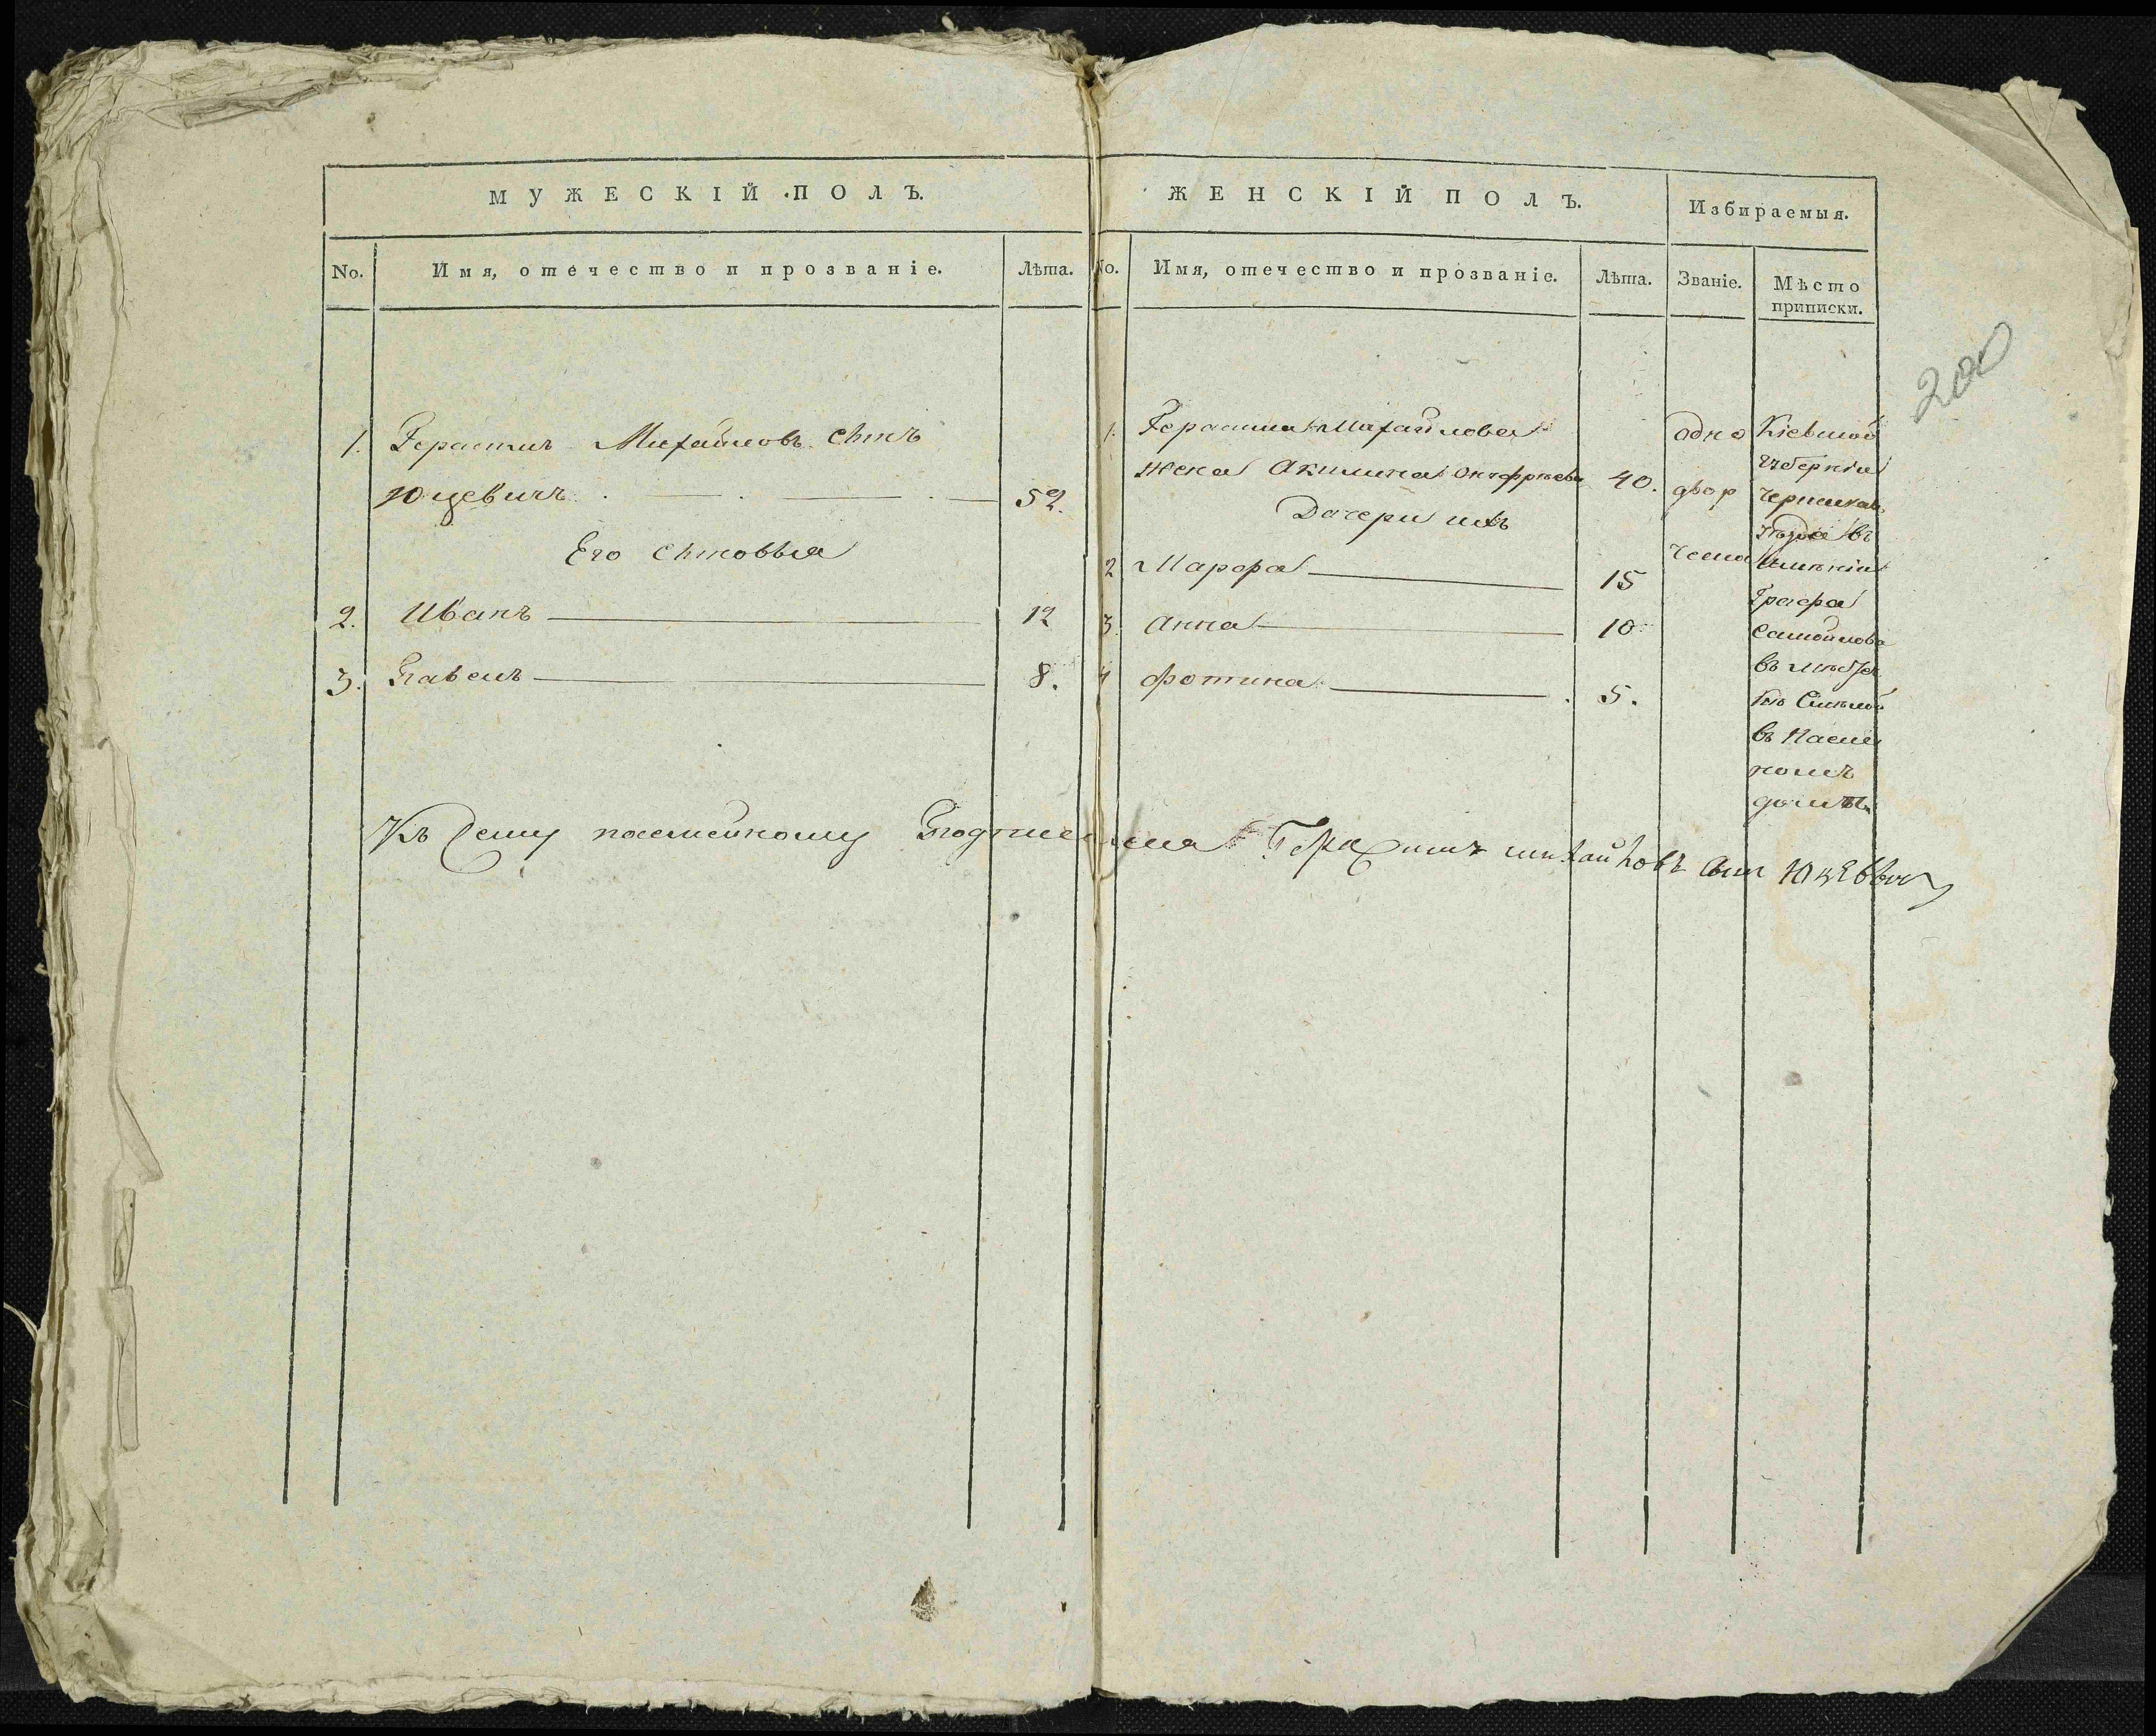 МУЖЕСКІЙ ПОЛЪ.
No. Имя, отечество и прозваніе. Лѣта.
1. Герасимъ Михайловъ сынъ
Юцевичъ 52.
Его сыновья
2. Иванъ 12
3. Павелъ 8.
ЖЕНСКІЙ ПОЛЪ. Избираемыя.
No. Имя, отечество и прозваніе. Лѣта. Званіе. Мѣсто
приписки.
200
1. Герасима Михайлова
жена Акилина Онуфріева 40.
Дочери ихъ
2 Марфа 15
3. Анна 10
4 Фотина 5.
одно
двор
Кіевской
Губерніи
Черкаска
уѣзда въ
имѣніи
Графа
Самойлова
въ мѣстеч
кѣ Смѣлой
въ Наем
номъ
домѣ
Къ Сему посемейному Подписался Герасимъ михайловъ сынъ Юцевичъ